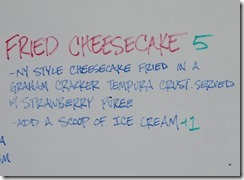 FRIED CHEESECAKE 5
-NY STYLE CHEESECAKE FRIED IN A
GRAHAM CRACKER TEMPURA CRUST. SERVED
W/ STRAWBERRY PUREE
-ADD A SCOOP OF ICE CREAM +1